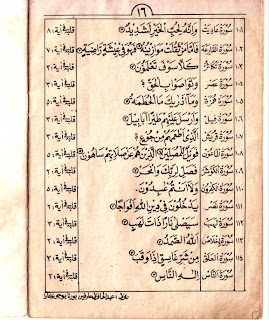 ١٦
١٠٠ سورة عاديت وَإِنَّهُ لِحُبِّ الْخَيْرِ لَشَدِيدٌ قلبية آية: ٨
١٠١ سورة القارعة فَأَمَّا مَنْ ثَقُلَتْ مَوَازِينُهُ فَهُوَ فِي عِيشَةٍ رَاضِيَةٍ قلبية آية: ٧
سورة تكاثر كَلَّا سَوْفَ تَعْلَمُونَ قلبية آية: ٣
سورة عصر وَتَوَاصَوْا بِالْحَقِّ قلبية آية: ٣
سورة همزة وَمَا أَدْرَاكَ مَا الْحُطَمَةُ قلبية آية:
سورة فيل وَأَرْسَلَ عَلَيْهِمْ طَيْرًا أَبَابِيلَ قلبية آية: ٣
سورة قريش الَّذِي أَطْعَمَهُمْ مِنْ جُوعٍ قلبية آية:
سورة الماعون فَوَيْلٌ لِلْمُصَلِّينَ الَّذِينَ هُمْ عَنْ صَلَاتِهِمْ سَاهُونَ قلبية آية:
سورة الكوثر فَصَلِّ لِرَبِّكَ وَانْحَرْ قلبية آية: ٢
سورة الكفرون وَلَا أَنْتُمْ عٰبِدُونَ قلبية آية: ٣
سورة نصر يَدْخُلُونَ فِي دِينِ اللَّهِ أَفْوَاجًا قلبية آية: ٢
سورة لهب سَيَصْلَى نَارًا ذَاتَ لَهَبٍ قلبية آية: ٣
سورة إخلاص اللَّهُ الصَّمَدُ قلبية آية: ٢
سورة الفلق مِنْ شَرِّ غَاسِقٍ إِذَا وَقَبَ قلبية آية: ٣
سورة الناس إِلَهِ النَّاسِ قلبية آية: ٣